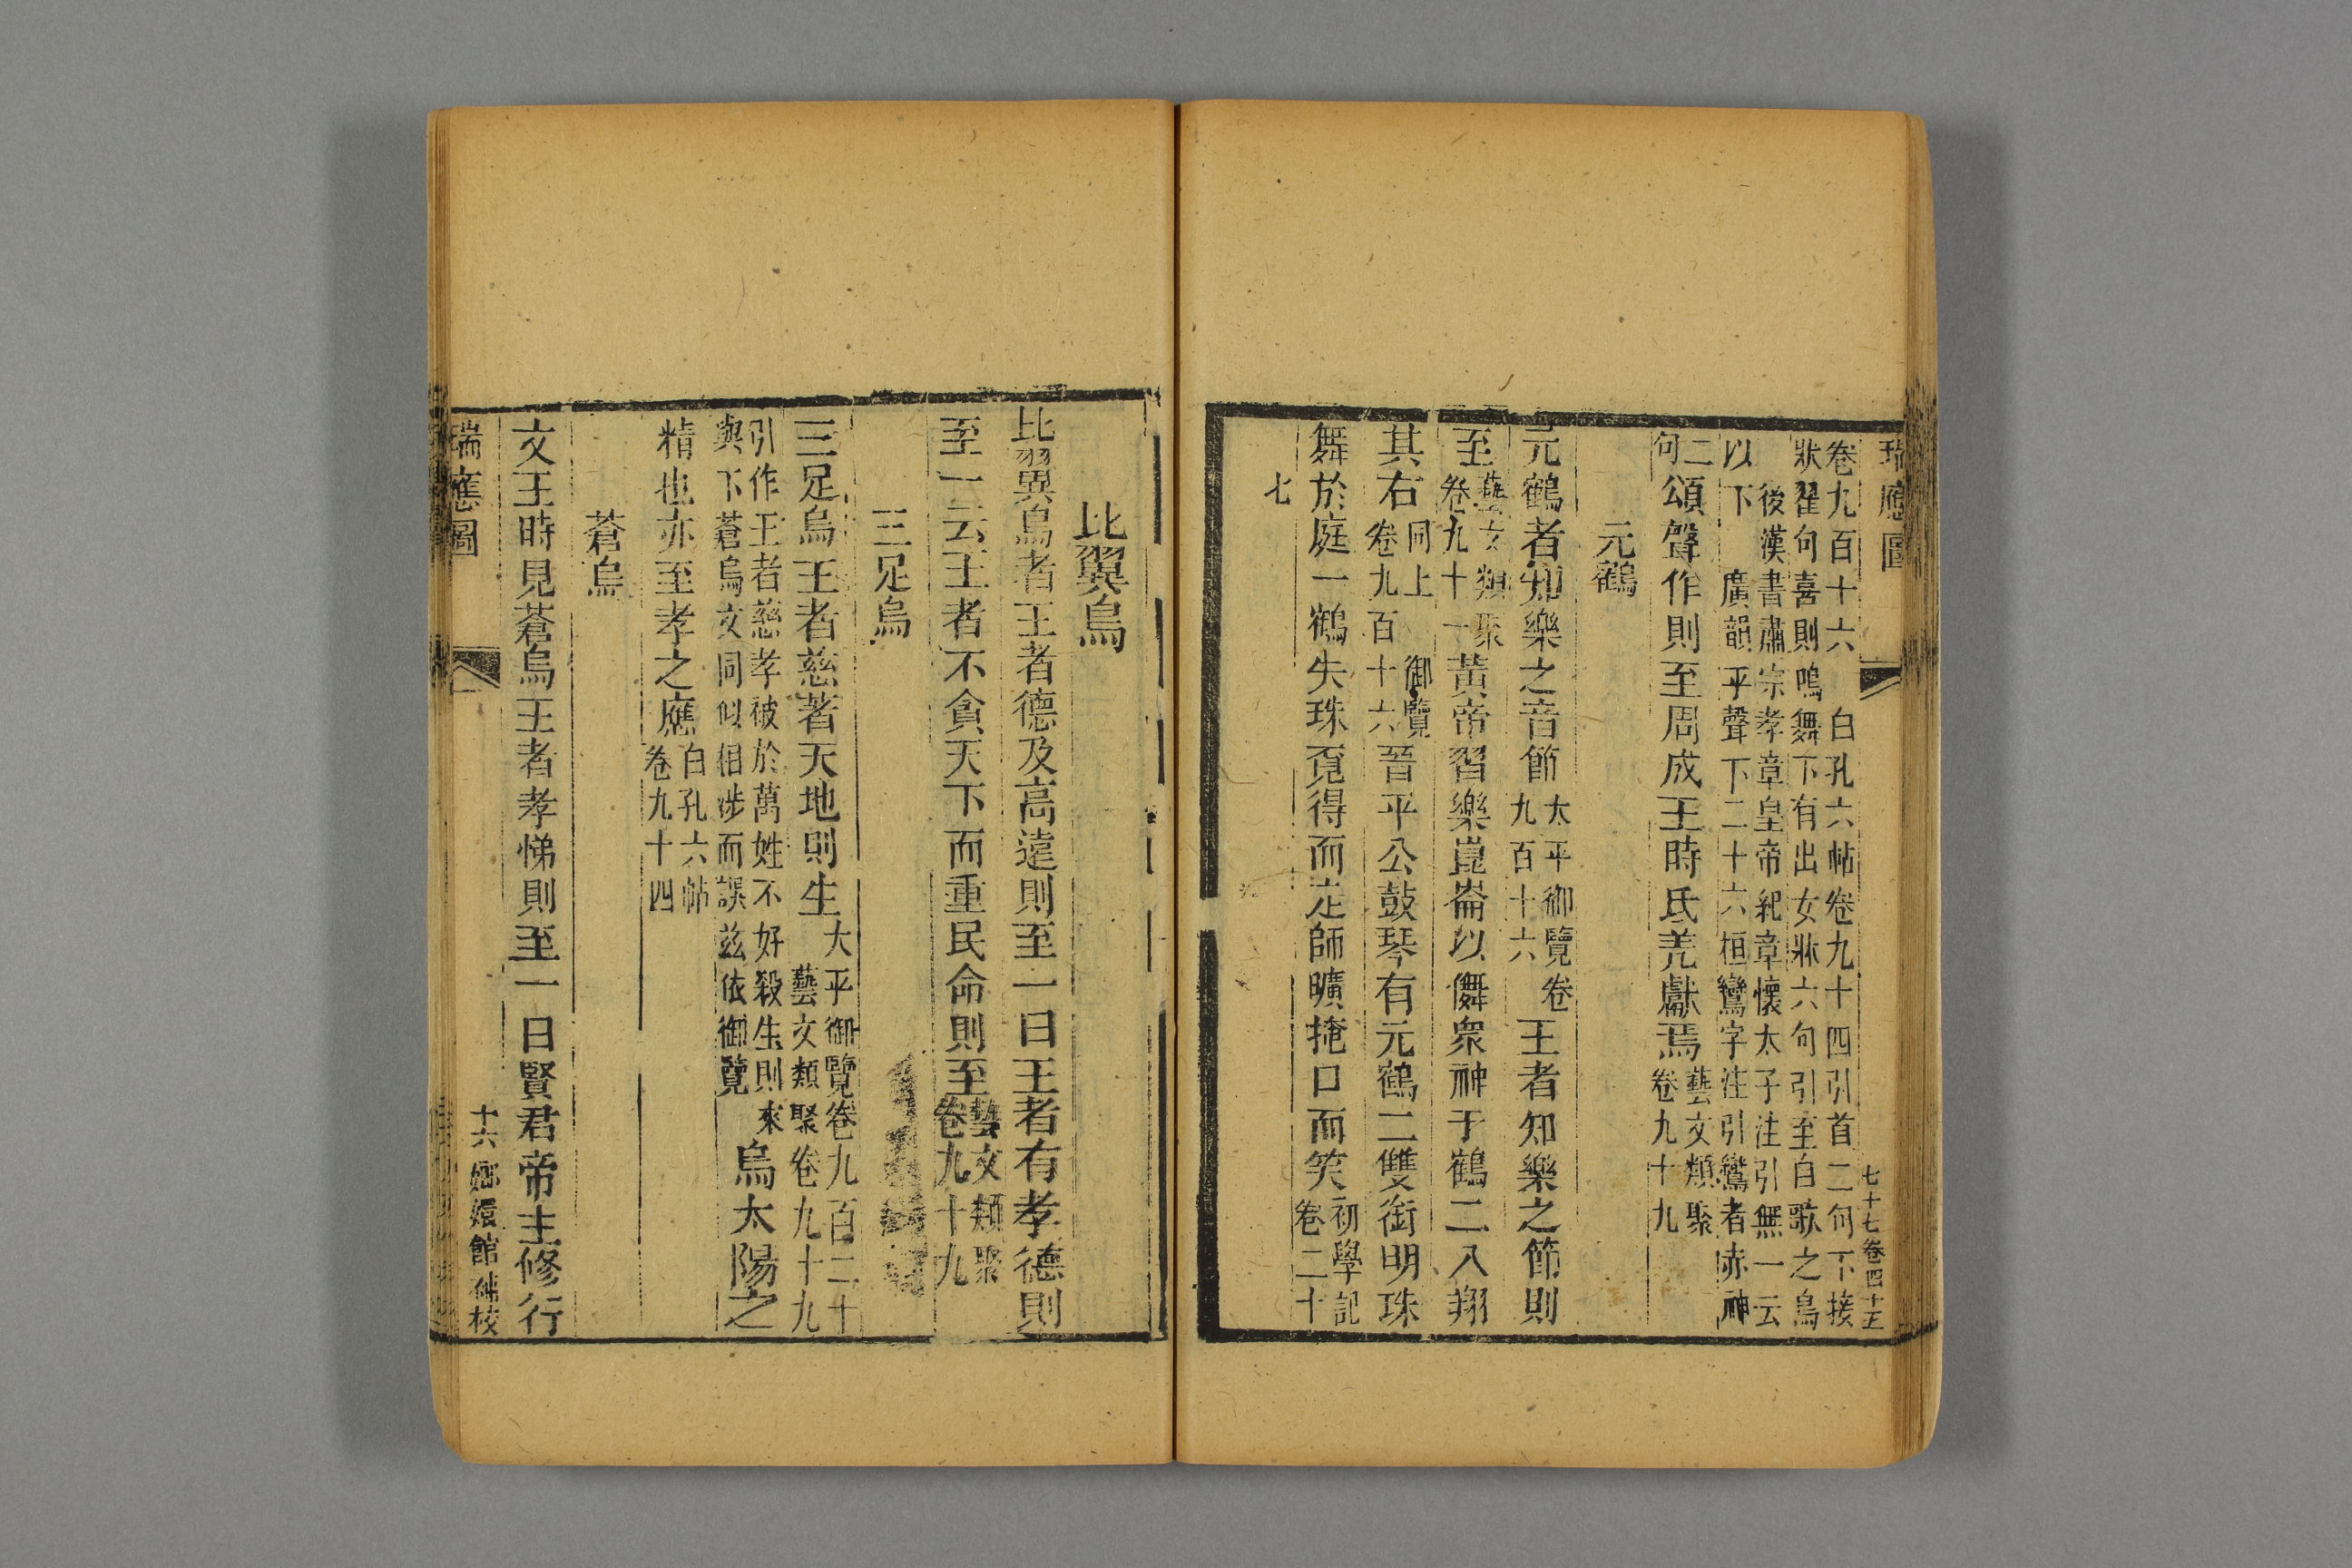 瑞應圖
七十七卷四十五
卷九百十六 白孔六帖卷九十四引首二句下接
狀翟句喜則鳴舞下有出女牀六句引至自歌之鳥
後漢書肅宗孝章皇帝紀章懷太子注引無一云
以下 廣韻平聲下二十六桓鸞字注引鸞者赤神
二句頌聲作則至周成王時氐羌獻焉藝文類聚卷九十九
元鶴
元鶴者知樂之音節太平御覽卷九百十六王者知樂之節則
至藝文類聚卷九十一黃帝習樂崑崙以儛衆神于鶴二八翔
其右同上 御覽卷九百十六晉平公鼓琴有元鶴二雙銜明珠
舞於庭一鶴失珠覔得而走師曠掩口而笑初學記卷二十
七
比翼鳥
比翼鳥者王者德及高遠則至一曰王者有孝德則
至一云王者不貪天下而重民命則至藝文類聚卷九十九
三足烏
三足烏王者慈著天地則生太平御覽卷九百二十 藝文類聚卷九十九
引作王者慈孝被於萬姓不好殺生則來
與下蒼烏文同似相涉而誤茲依御覽烏太陽之
精也亦至孝之應白孔六帖卷九十四
蒼烏
文王時見蒼烏王者孝悌則至一曰賢君帝主修行
瑞應圖
十六嫏嬛館補校